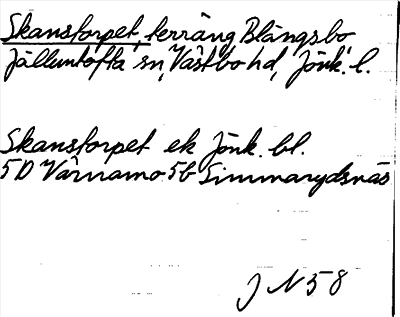 Skanstorpet, terräng Blängsbo
Jälluntofta sn, Västbo hd, Jönk. l.
Skanstorpet ek Jönk. bl.
5D Värnamo 5b Simmarydsnäs
J N 58